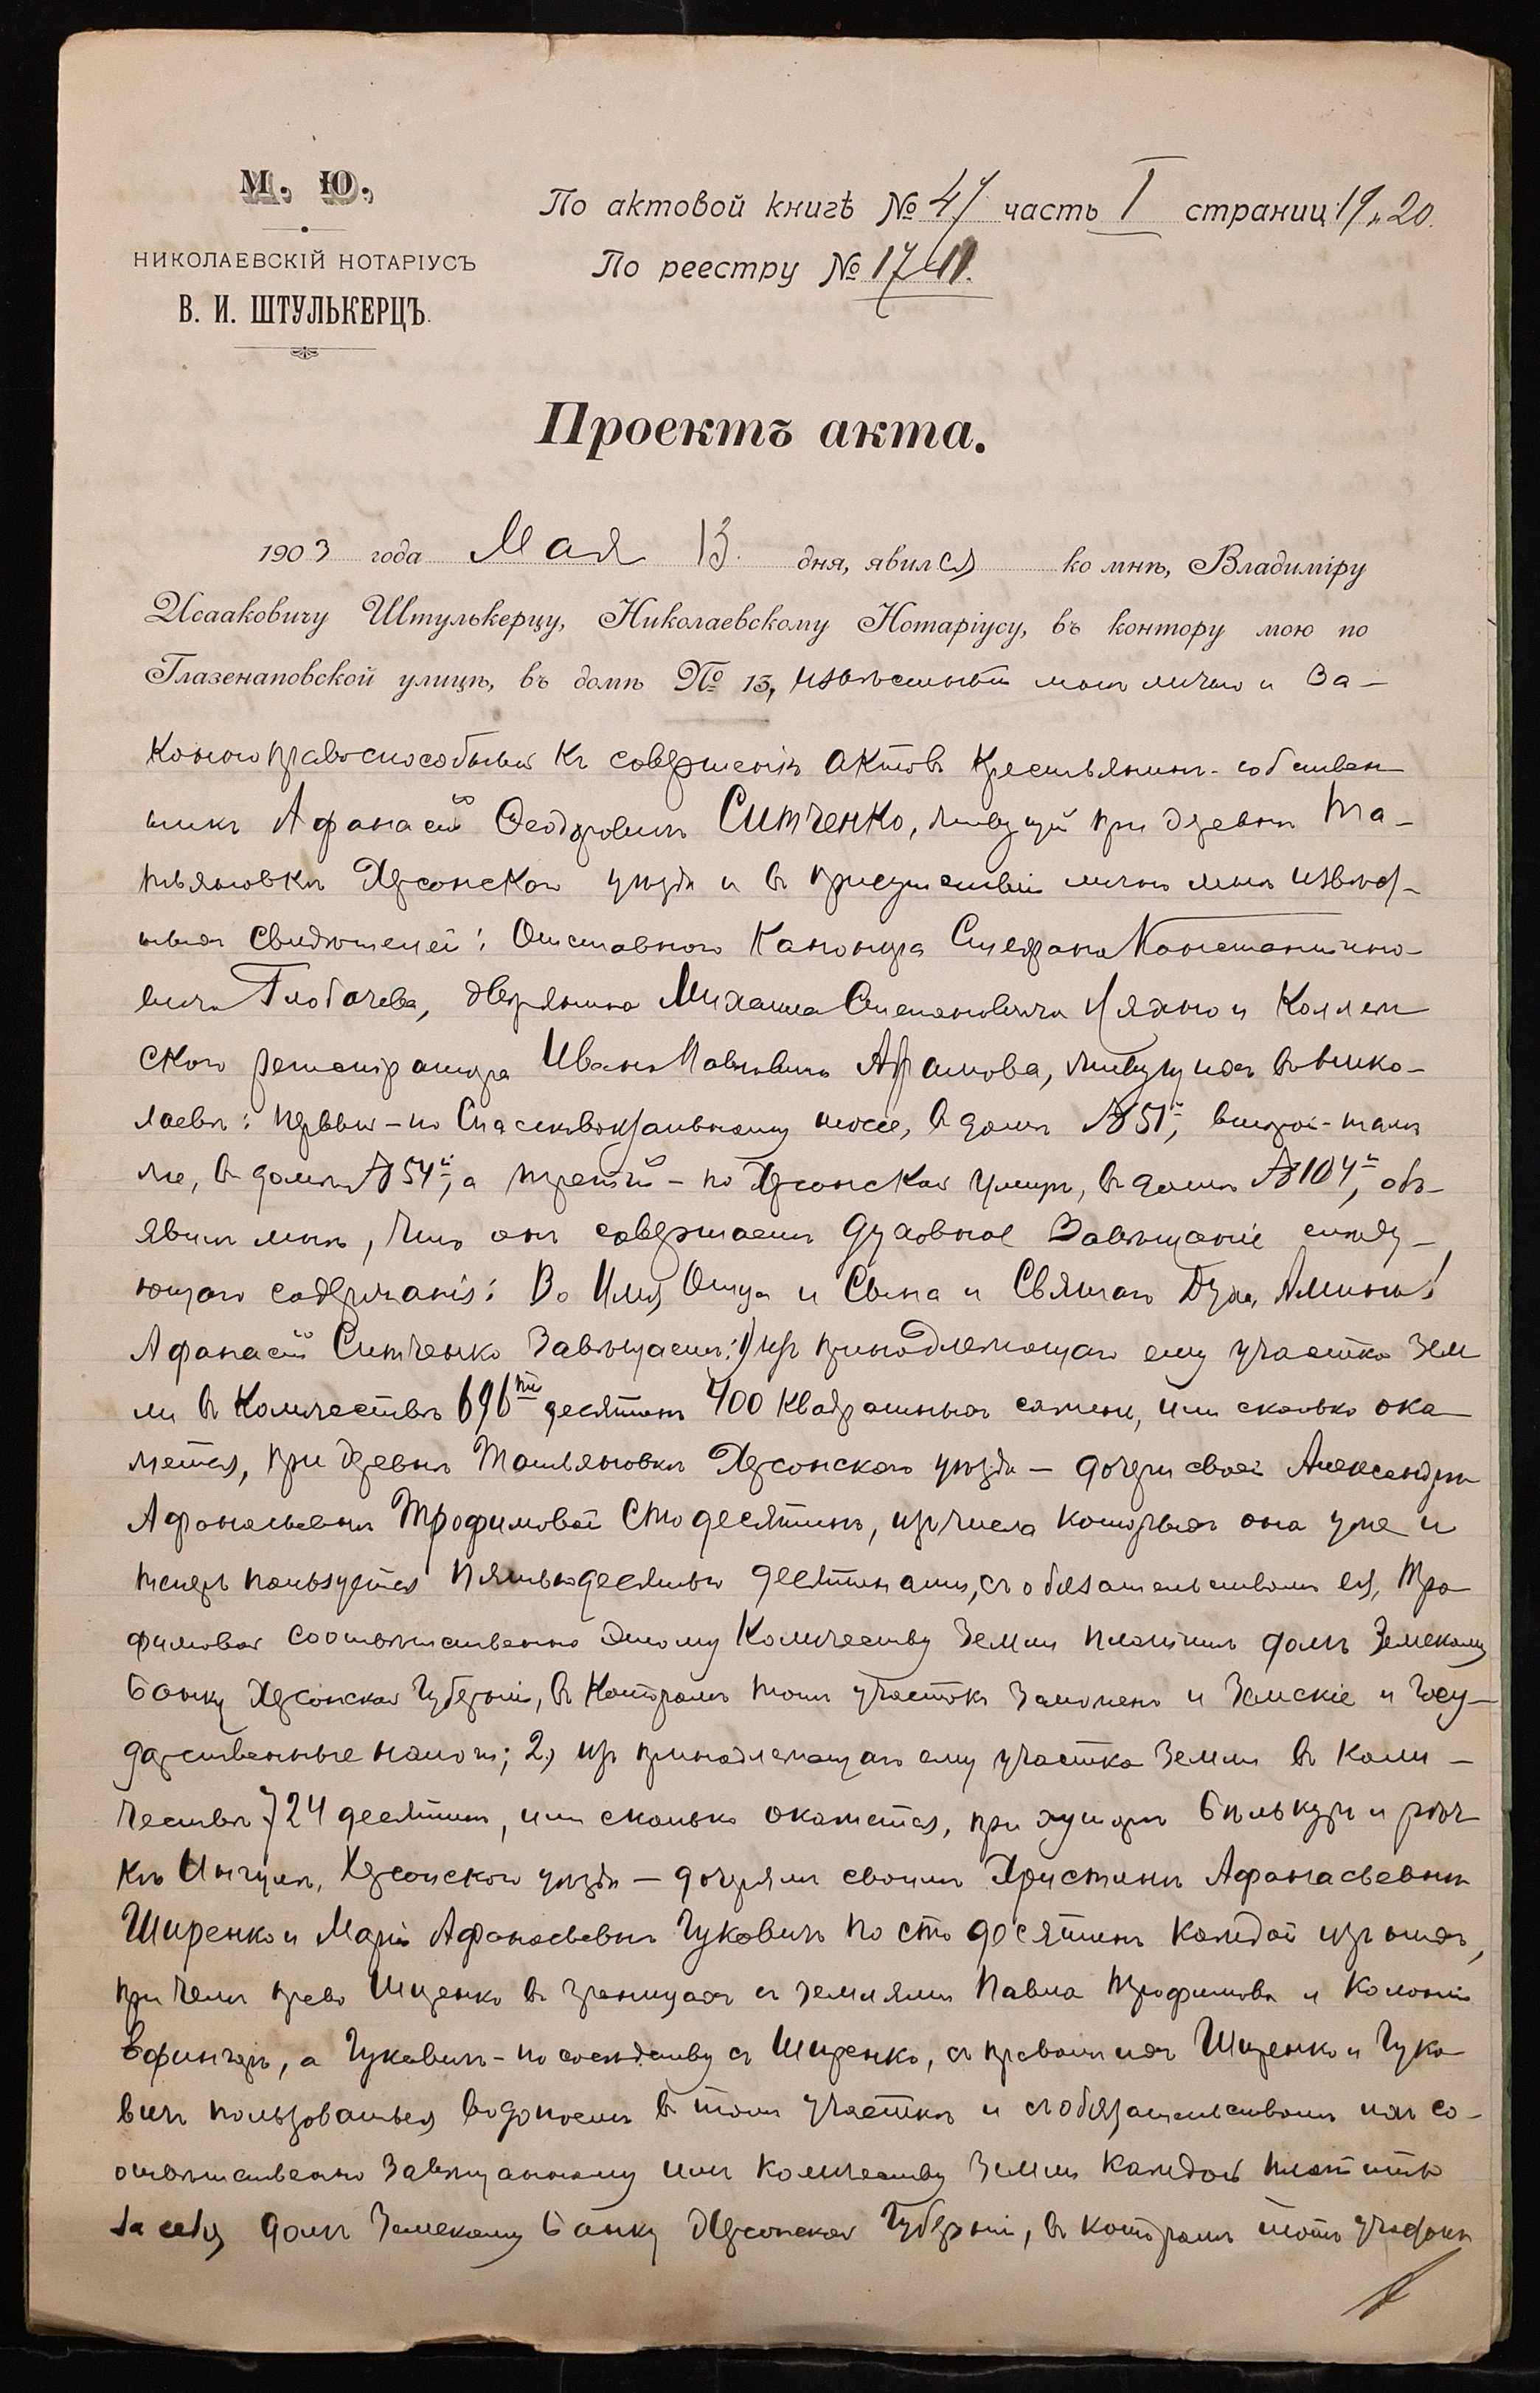 М. Ю.
НИКОЛАЕВСКІЙ НОТАРІУСЪ
В. И. ШТУЛЬКЕРЦЪ.
По актовой книгѣ № 47 часть I страниц 19 и 20.
По реестру № 1711.
Проектъ акта.
1903 года Мая 13 дня, явился ко мнѣ, Владиміру
Исааковичу Штулькерцу, Николаевскому Нотаріусу, въ контору мою по
Глазенаповской улицѣ, въ домѣ № 13, извѣстный мнѣ лично и за-
конно правоспособный къ совершенію актовъ крестьянинъ-собствен
никъ Афанасій Феодоровичъ Ситченко, живущій при деревнѣ Та-
тьяновкѣ Херсонскаго уѣзда и въ присутствіи лично мнѣ извѣст-
ныхъ свидѣтелей: Отставного Канонира Стефана Константино-
вича Глобачева, дворянина Михаила Степановича Ляхно и Коллеж
скаго регистратора Ивана Павловича Абрамова, живущихъ въ Нико-
лаевѣ: первый-по шоссе, въ домѣ № 51й, второй-тамъ
же, въ домѣ № 54й, а третій-по Херсонской улицѣ, въ домѣ № 104й, объ-
явилъ мнѣ, что онъ совершаетъ духовное завѣщаніе слѣду-
ющаго содержанія: Во Имя Отца и Сына и Святаго Духа, Аминь!
Афанасій Ситченко завѣщаетъ: 1) изъ принадлежащаго ему участка зем
ли въ количествѣ 696ти десятинъ 400 квадратныхъ сажень, или сколько ока
жется, при деревнѣ Татьяновкѣ Херсонскаго уѣзда — дочери своей Александрѣ
Афанасьевнѣ Трофимовой сто десятинъ, изъ числа которыхъ она уже и
теперь пользуется пятьюдесятью десятинами, съ обязательствомъ ея, Тро
фимовой соотвѣтственно этому количеству земли платить долгъ Земскому
Банку Херсонской Губерніи, въ которомъ тотъ участокъ заложенъ и Земскіе и Госу-
дарственные налоги; 2) изъ принадлежащаго ему участка земли въ коли-
чествѣ 724 десятинъ, или сколько окажется, при хуторѣ и рѣч
кѣ Ингулѣ, Херсонскаго уѣзда — дочерямъ своимъ Христинѣ Афанасьевнѣ
Ищенко и Маріи Афанасьевнѣ Чуковичъ по сто десятинъ каждой изъ нихъ,
при чемъ Ищенко въ границахъ съ землями Павла Трофимова и колоніи
а Чуковичъ-по сосѣдству съ Ищенко, съ правомъ ихъ Ищенко и Чуко
вичъ пользоваться водопоемъ въ томъ участкѣ и съ обязательствомъ ихъ со-
отвѣтственно завѣщанному имъ количеству земли каждой платить
за себя долгъ Земскому Банку Херсонской Губерніи, въ которомъ тотъ участокъ